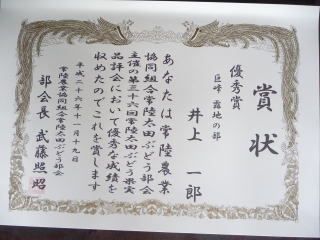 賞状
優秀賞
巨峰 露地の部
井上 一郎
あなたは常陸農業
協同組合常陸太田ぶどう部会
主催の第三十六回常陸太田ぶどう果実
品評会において優秀な成績を
収めたのでこれを賞します
平成二十六年十一月十九日
常陸農業協同組合常陸太田ぶどう部会
部会長 武藤照昭